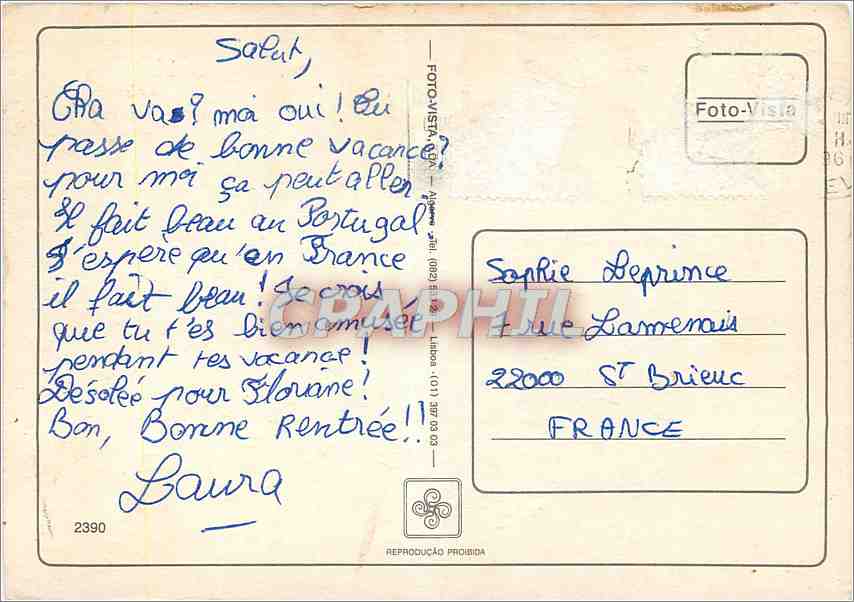 Salut,
Cha vas? moi oui!
passe de bonne vacance?
pour moi ça peut aller,
Il fait beau au Portugal
J'espère qu'en France
il fait beau! Je crois
que tu t'es bien amusée
pendant tes vacance!
Désolée pour Floriane!
Bon, Bonne Rentrée!!
Laura
2390
FOTO-VISTA, LDA — Algarve - Tel. (082)
Lisboa - (01) 397 03 03
REPRODUÇÃO PROIBIDA
Foto-Vista
Sophie Leprince
7 rue Lamenais
22000 ST Brieuc
FRANCE
CPAPHIL